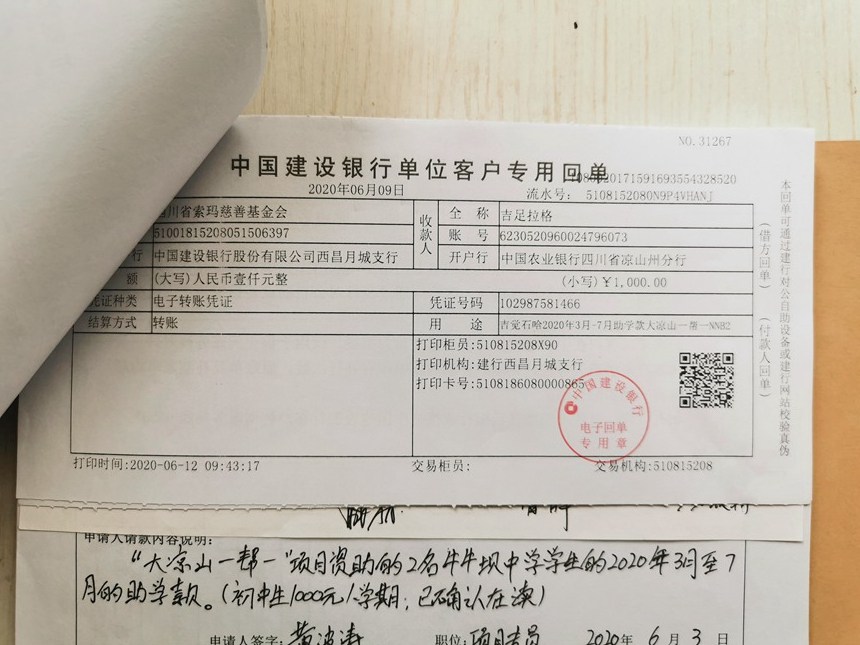 NO.31267
中国建设银行单位客户专用回单
2020年06月09日
流水号: 5108152080N9P4VHANJ
川省索玛慈善基金会
收款人
全 称 吉足拉格
51001815208051506397
账 号 6230520960024796073
行 中国建设银行股份有限公司西昌月城支行
开户行 中国农业银行四川省凉山州分行
额 (大写)人民币壹仟元整
(小写)¥1,000.00
凭证种类 电子转账凭证
凭证号码 102987581466
结算方式 转账
用 途 吉觉石哈2020年3月-7月助学款大凉山一帮一NNB2
打印柜员:510815208X90
打印机构:建行西昌月城支行
打印卡号:5108186080000865
中国建设银行
电子回单
专用章
打印时间:2020-06-12 09:43:17
交易柜员:
交易机构:510815208
(借方回单)
(付款人回单)
本回单可通过建行对公自助设备或建行网站校验真伪
申请人请款内容说明:
“大凉山一帮一”项目资助的2名牛牛坝中学学生的2020年3月至7
月的助学款。(初中生1000元/学期;已确认在读)
申请人签字: 黄波涛
职位: 项目专员
2020年 6 月 3 日